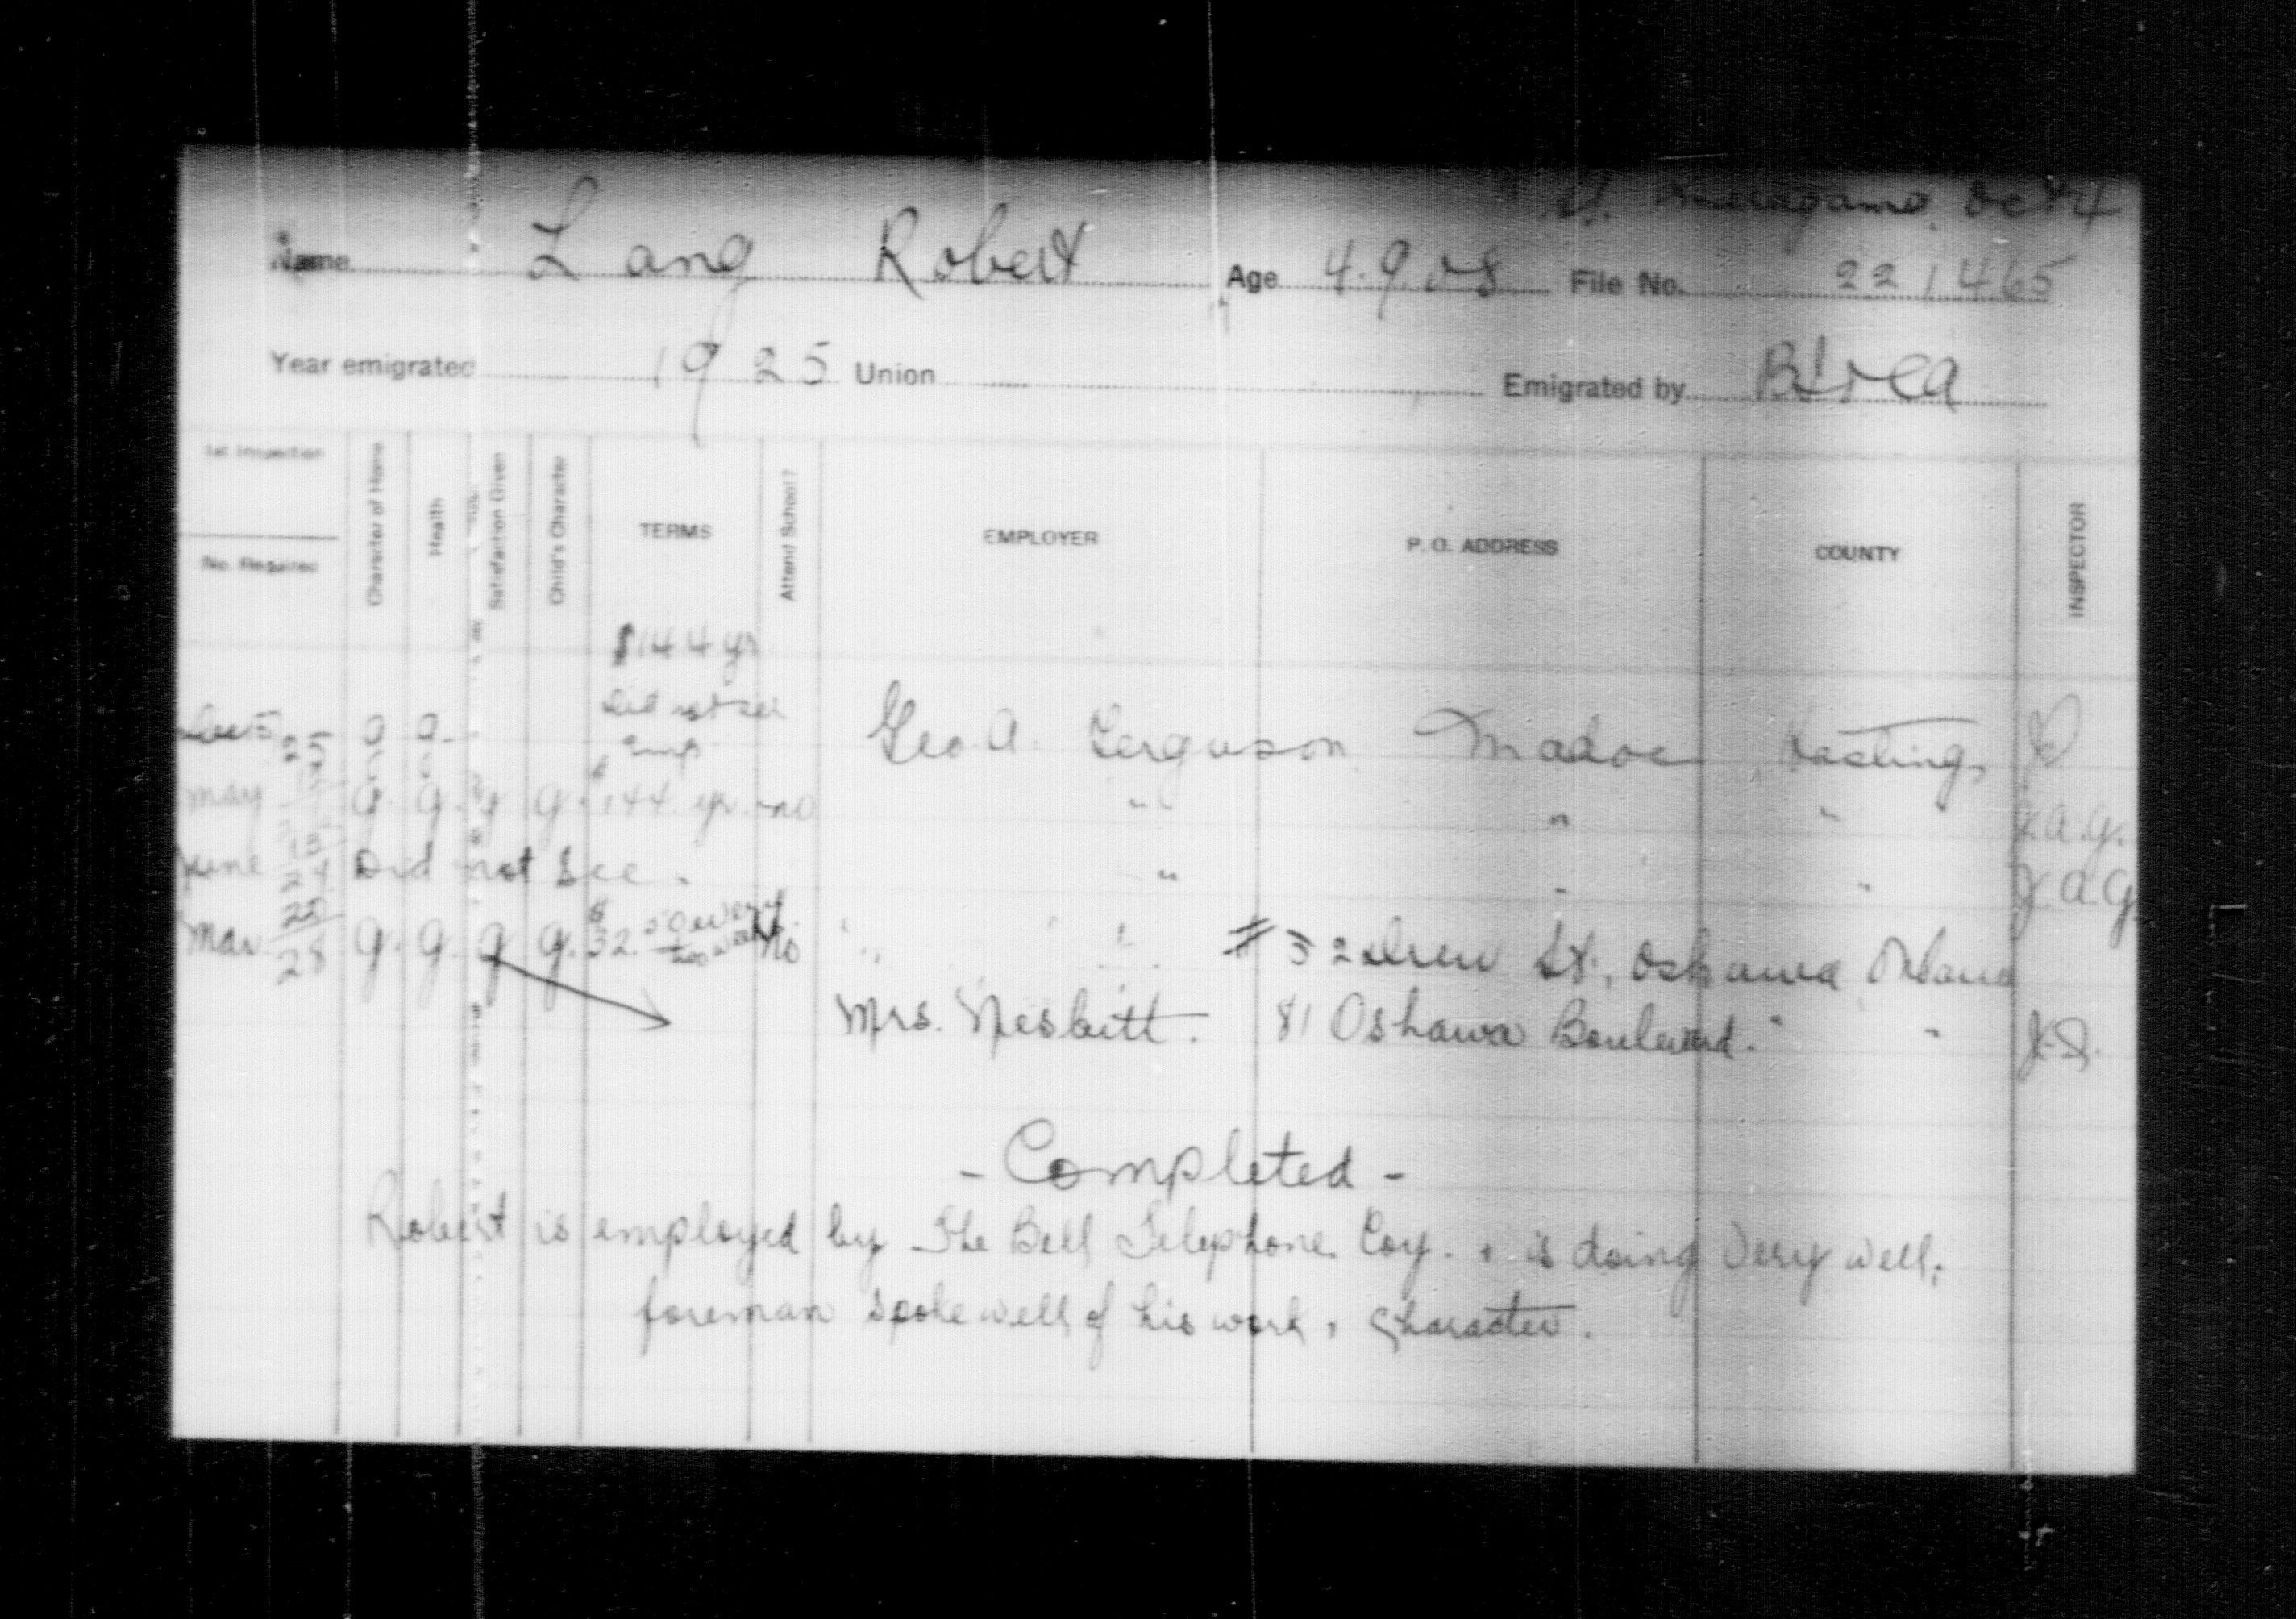 Metagama Oct 4
Name Lang Robert Age 4.9.08 File No. 221465
Year emigrated 1925 Union Emigrated by
1st Inspection
No. Required
Character of Home
Health
Satisfaction Given
Child's Character
TERMS
Attend School?
EMPLOYER
P. O. ADDRESS
COUNTY
INSPECTOR
$144 yr
Did not see
Emp.
Dec 5 25 G G. Geo. A. Ferguson Madoc Hastings
May g. g. g g. $144. yr. no " " " J.A.G.
June 24 Did not See. " " " J.A.G.
Mar 22 28 g. g. g g. $32.50 every two weeks No " " # 52 Drew St., Oshawa Ontario
Mrs. Nesbitt. 81 Oshawa Boulevard. " "
- Completed -
Robert is employed by The Bell Telephone Coy. & is doing very well,
foreman spoke well of his work & character.